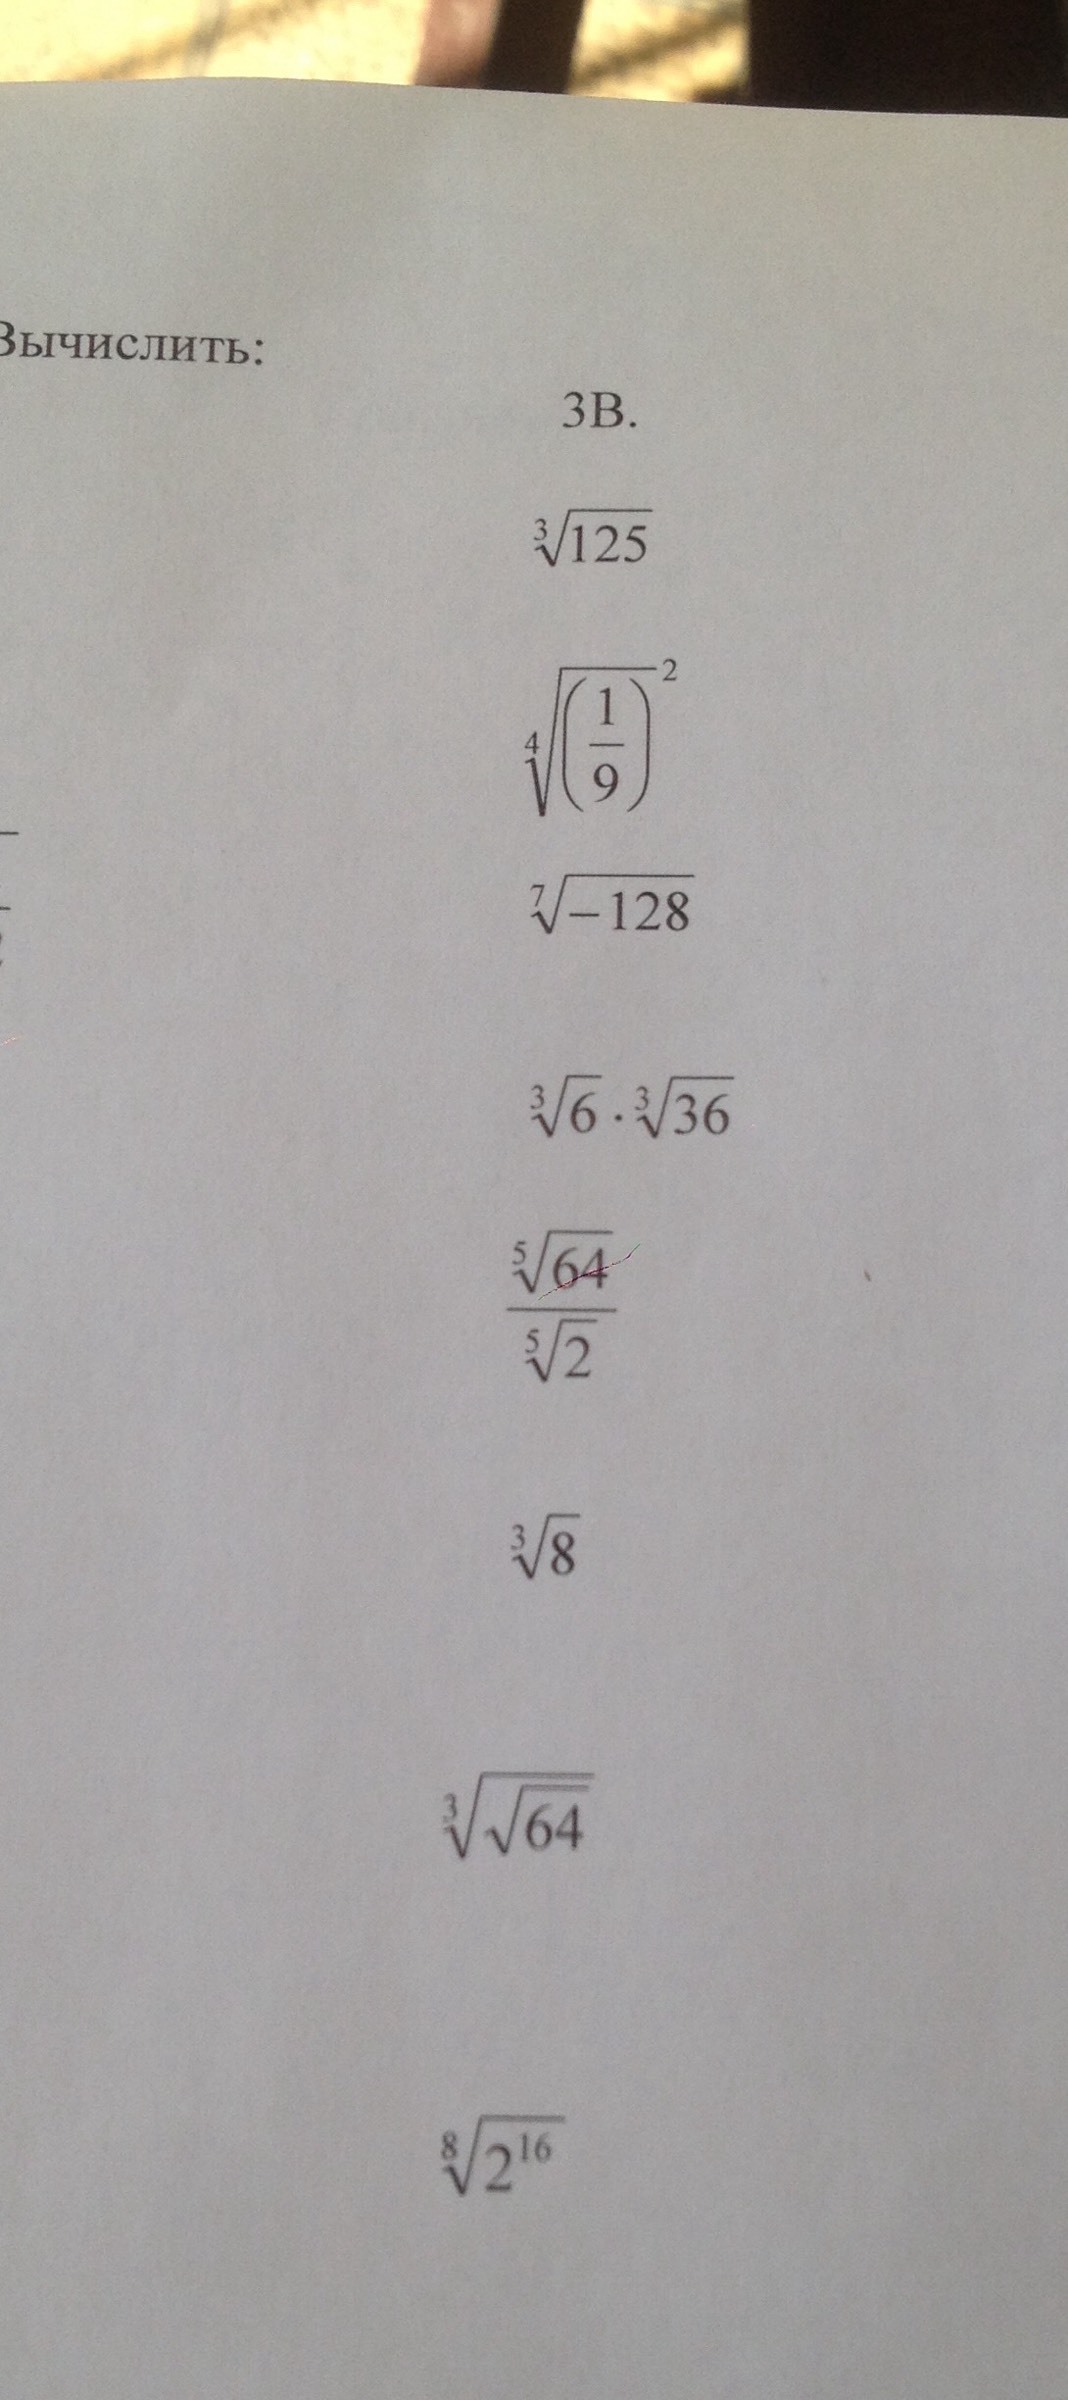 Вычислить:
3В.
∛125
∜(1/9)²
⁷√−128
∛6 · ∛36
⁵√64 / ⁵√2
∛8
∛√64
⁸√2¹⁶